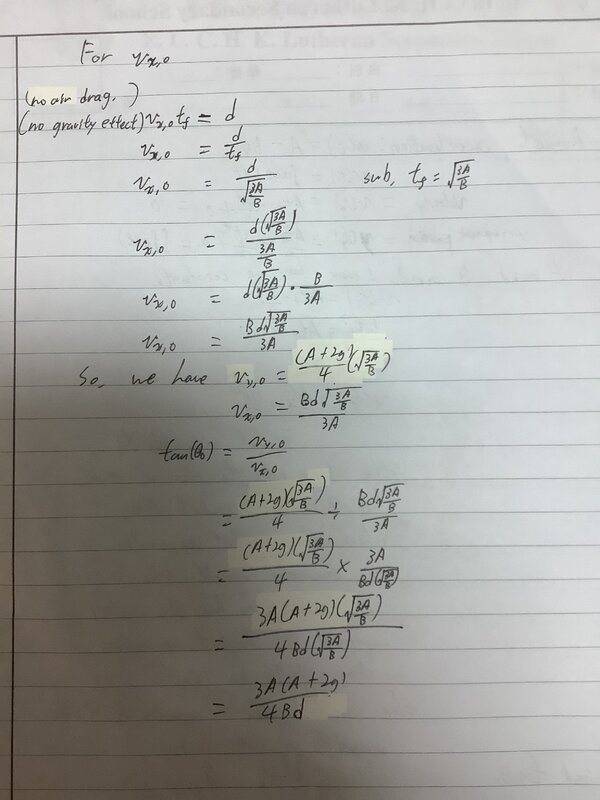 For v_{x,0}
(no air drag.)
(no gravity effect) v_{x,0} t_f = d
v_{x,0} = \frac{d}{t_f}
v_{x,0} = \frac{d}{\sqrt{\frac{3A}{B}}} sub, t_f = \sqrt{\frac{3A}{B}}
v_{x,0} = \frac{d(\sqrt{\frac{3A}{B}})}{\frac{3A}{B}}
v_{x,0} = d(\sqrt{\frac{3A}{B}}) \cdot \frac{B}{3A}
v_{x,0} = \frac{Bd\sqrt{\frac{3A}{B}}}{3A}
So, we have v_{y,0} = \frac{(A+2g)}{4}(\sqrt{\frac{3A}{B}})
v_{x,0} = \frac{Bd\sqrt{\frac{3A}{B}}}{3A}
tan(θ_0) = \frac{v_{y,0}}{v_{x,0}}
= \frac{(A+2g)(\sqrt{\frac{3A}{B}})}{4} ÷ \frac{Bd\sqrt{\frac{3A}{B}}}{3A}
= \frac{(A+2g)(\sqrt{\frac{3A}{B}})}{4} × \frac{3A}{Bd(\sqrt{\frac{3A}{B}})}
= \frac{3A(A+2g)(\sqrt{\frac{3A}{B}})}{4Bd(\sqrt{\frac{3A}{B}})}
= \frac{3A(A+2g)}{4Bd}